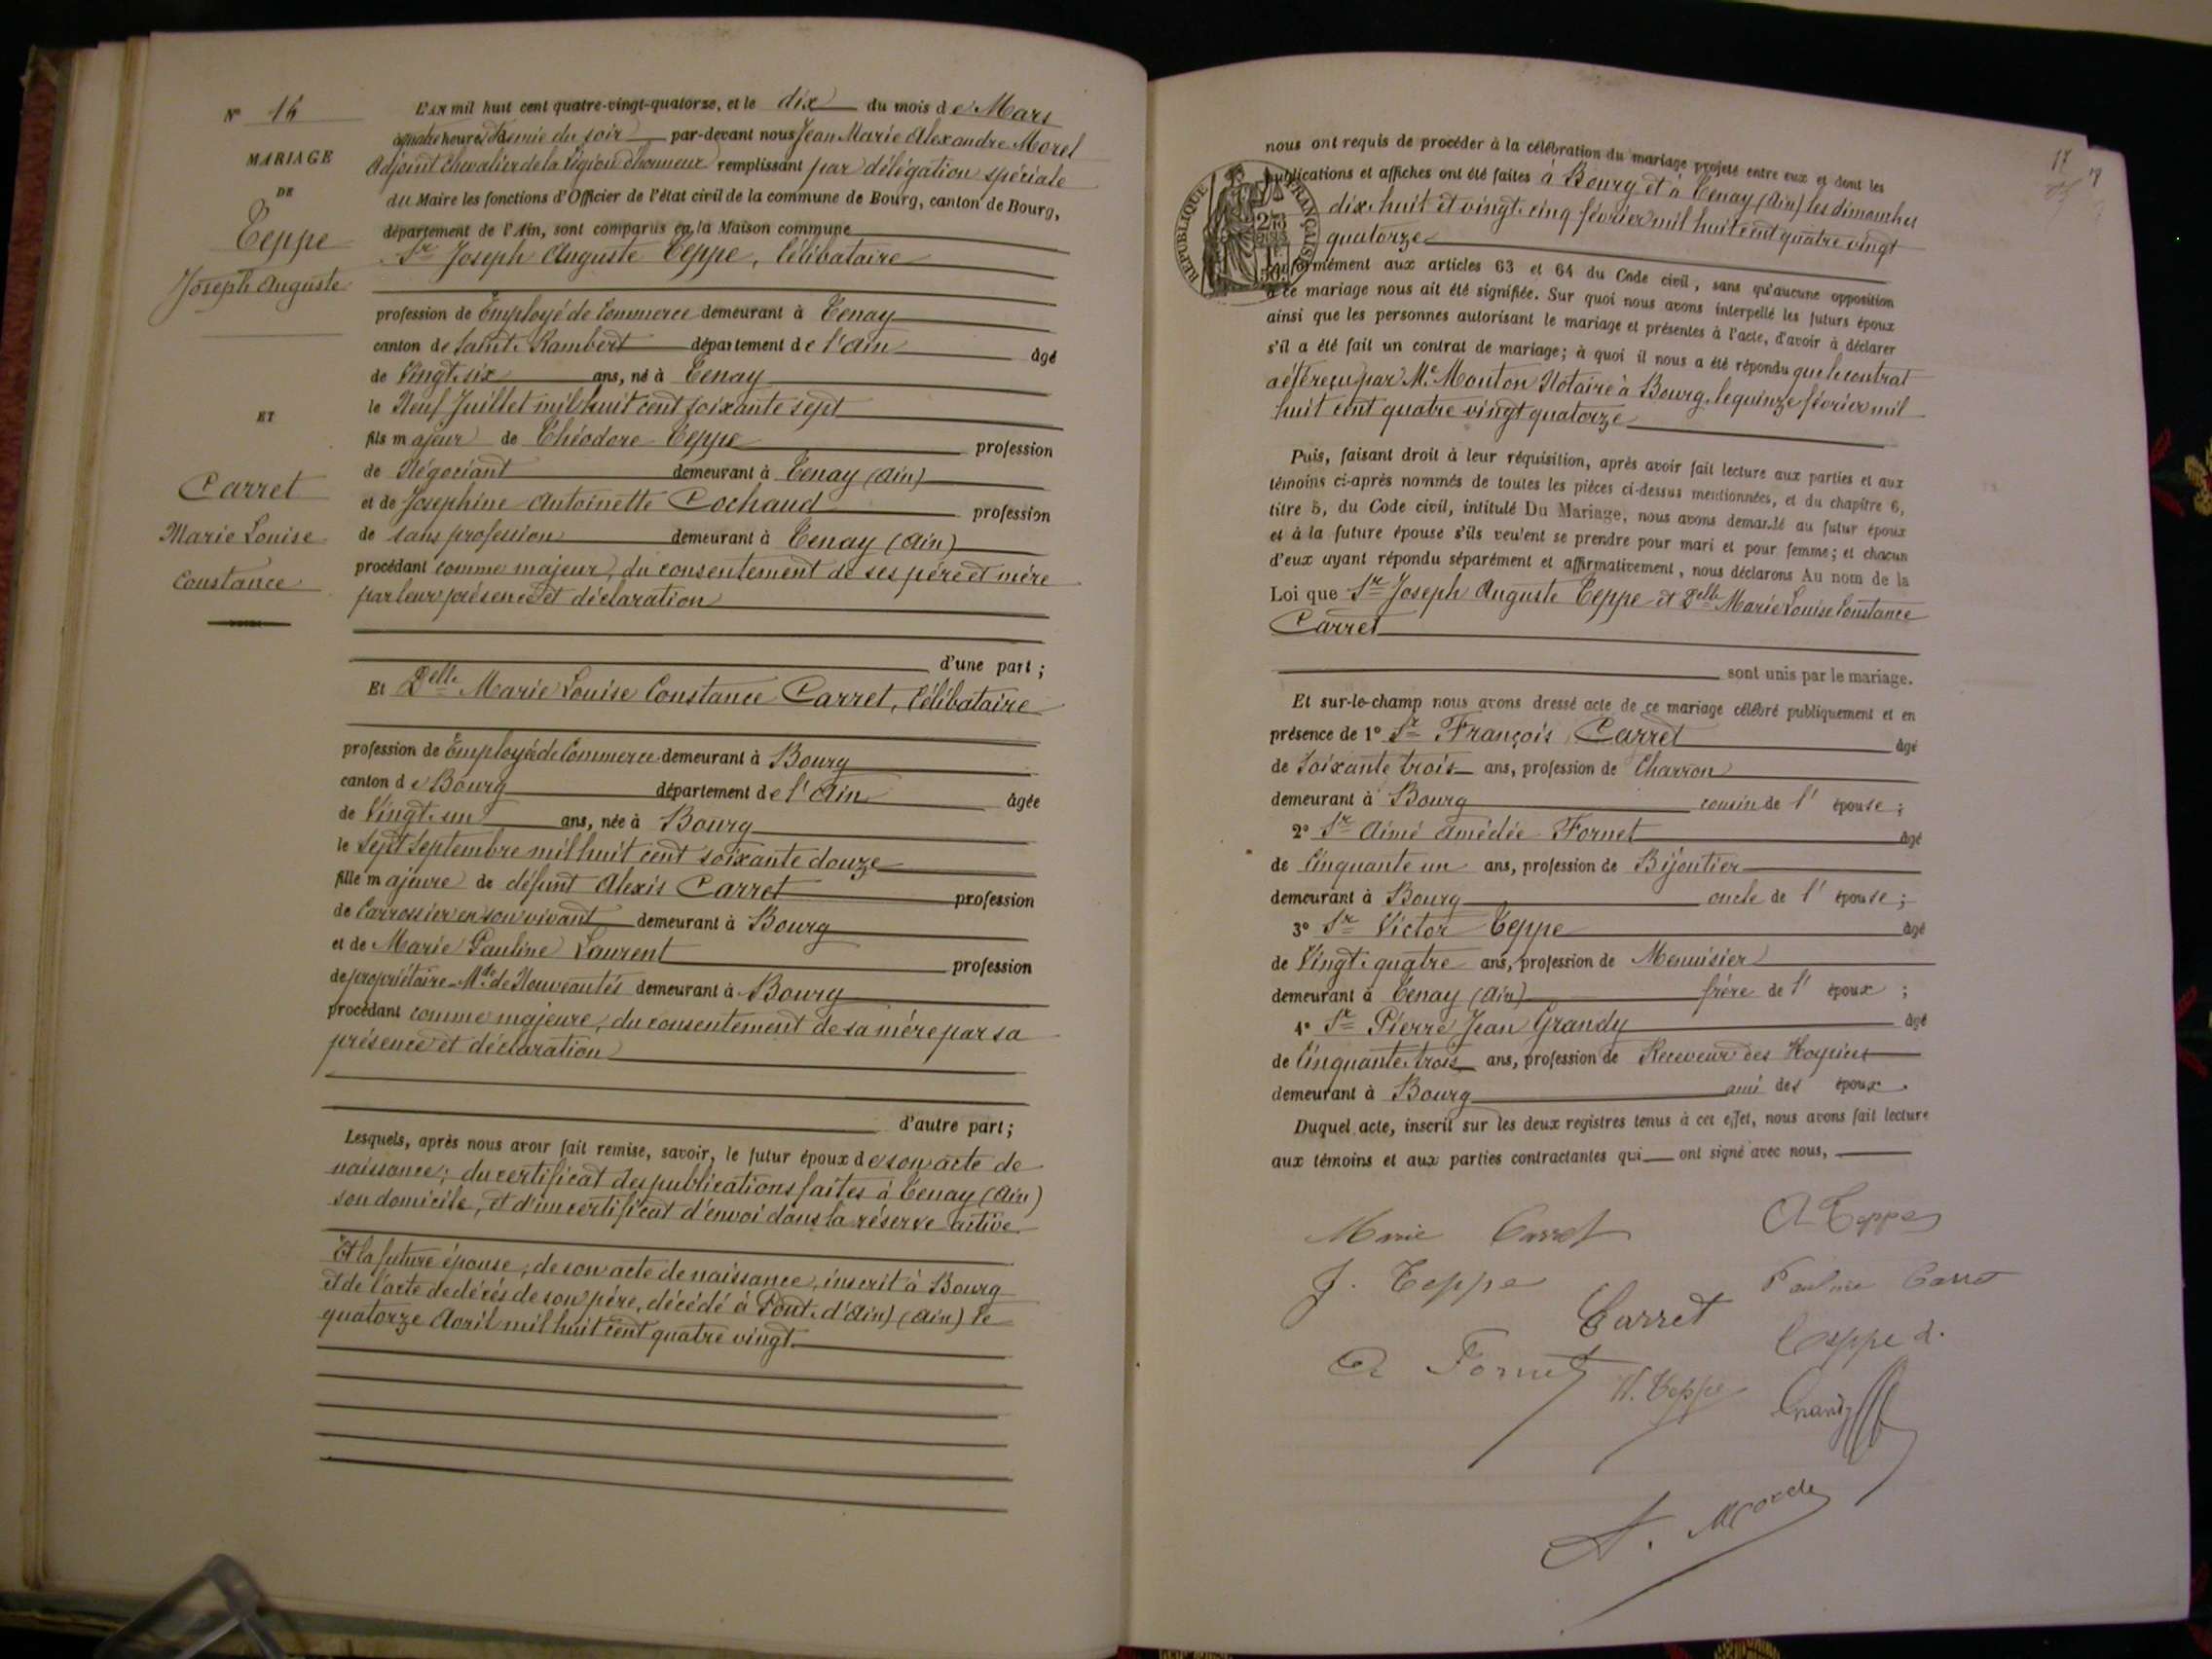 N° 16
MARIAGE
DE
Teppe
Joseph Auguste
ET
Carret
Marie Louise
Constance
L'AN mil huit cent quatre-vingt-quatorze, et le dix du mois de Mars
à quatre heures & demie du soir par-devant nous Jean Marie Alexandre Morel
Adjoint Chevalier de la Légion d'honneur remplissant par délégation spéciale
du Maire les fonctions d'Officier de l'état civil de la commune de Bourg, canton de Bourg,
département de l'Ain, sont comparus en la Maison commune
Sr Joseph Auguste Teppe, Célibataire
profession de Employé de Commerce demeurant à Tenay
canton de Saint-Rambert département de l'Ain âgé
de Vingt-six ans, né à Tenay
le Neuf Juillet mil huit cent soixante sept
fils majeur de Théodore Teppe profession
de Négociant demeurant à Tenay (Ain)
et de Josephine Antoinette Cochaud profession
de sans profession demeurant à Tenay (Ain)
procédant comme majeur, du consentement de ses père et mère
par leur présence et déclaration
d'une part ;
Et Delle Marie Louise Constance Carret, Célibataire
profession de Employée de Commerce demeurant à Bourg
canton de Bourg département de l'Ain âgée
de Vingt-un ans, née à Bourg
le Sept Septembre mil huit cent soixante douze
fille majeure de défunt Alexis Carret profession
de Carrossier en son vivant demeurant à Bourg
et de Marie Pauline Laurent profession
de propriétaire-Mde de Nouveautés demeurant à Bourg
procédant comme majeure, du consentement de sa mère par sa
présence et déclaration
d'autre part ;
Lesquels, après nous avoir fait remise, savoir, le futur époux de son acte de
naissance ; du certificat des publications faites à Tenay (Ain)
son domicile, et d'un certificat d'envoi dans la réserve active
Et la future épouse, de son acte de naissance, inscrit à Bourg
et de l'acte de décès de son père, décédé à Pont-d'Ain (Ain) le
quatorze Avril mil huit cent quatre vingt.
17
nous ont requis de procéder à la célébration du mariage projeté entre eux et dont les
publications et affiches ont été faites à Bourg et à Tenay (Ain) les dimanches
dix-huit et vingt-cinq février mil huit cent quatre vingt
quatorze
RÉPUBLIQUE FRANÇAISE
conformément aux articles 63 et 64 du Code civil, sans qu'aucune opposition
à ce mariage nous ait été signifiée. Sur quoi nous avons interpellé les futurs époux
ainsi que les personnes autorisant le mariage et présentes à l'acte, d'avoir à déclarer
s'il a été fait un contrat de mariage ; à quoi il nous a été répondu que le contrat
a été reçu par Me Mouton Notaire à Bourg, le quinze février mil
huit cent quatre vingt quatorze
Puis, faisant droit à leur réquisition, après avoir fait lecture aux parties et aux
témoins ci-après nommés de toutes les pièces ci-dessus mentionnées, et du chapitre 6,
titre 5, du Code civil, intitulé Du Mariage, nous avons demandé au futur époux
et à la future épouse s'ils veulent se prendre pour mari et pour femme ; et chacun
d'eux ayant répondu séparément et affirmativement, nous déclarons Au nom de la
Loi que Sr Joseph Auguste Teppe et Delle Marie Louise Constance
Carret
sont unis par le mariage.
Et sur-le-champ nous avons dressé acte de ce mariage célébré publiquement et en
présence de 1° Sr François Carret âgé
de Soixante trois ans, profession de Charron
demeurant à Bourg cousin de l'épouse ;
2° Sr Aimé Amédée Fornet âgé
de Cinquante un ans, profession de Bijoutier
demeurant à Bourg oncle de l'épouse ;
3° Sr Victor Teppe âgé
de Vingt-quatre ans, profession de Menuisier
demeurant à Tenay (Ain) frère de l'époux ;
4° Sr Pierre Jean Grandy âgé
de Cinquante-trois ans, profession de Receveur des Hospices
demeurant à Bourg ami des époux.
Duquel acte, inscrit sur les deux registres tenus à cet effet, nous avons fait lecture
aux témoins et aux parties contractantes qui ont signé avec nous,
Marie Carret A Teppe
J. Teppe Pauline Carret
Carret Teppe
A Fornet V. Teppe Grandy
A. Morel